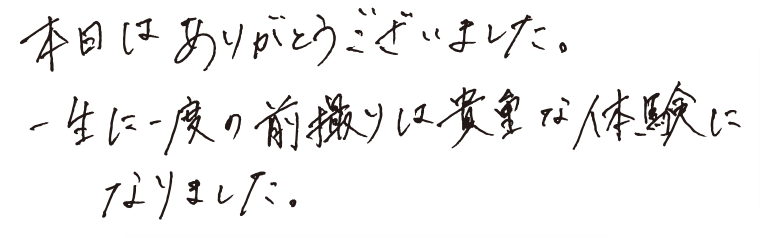 本日はありがとうございました。
一生に一度の前撮りは貴重な体験に
なりました。